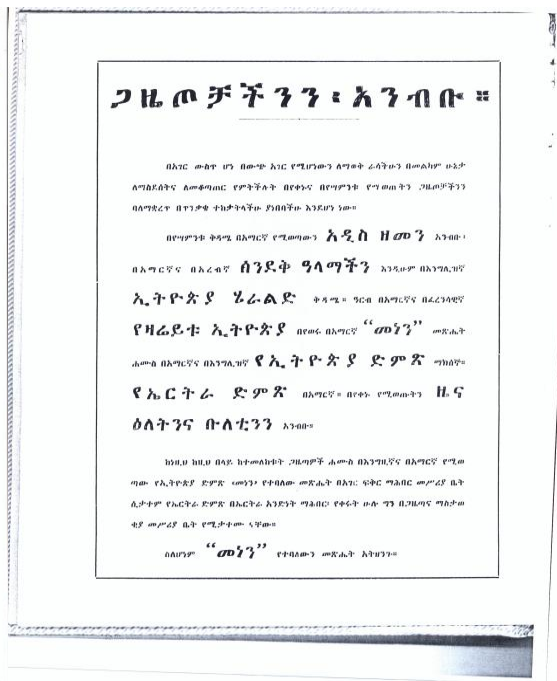 ጋዜጦቻችንን፡ አንብቡ ።
በአገር ውስጥ ሆነ በውጭ አገር የሚሆነውን ለማወቅ ራሳችሁን በመልካም ሁኔታ
ለማስደሰትና ለመቆጣጠር የምትችሉት በየቀኑና በየሣምንቱ የሚወጡትን ጋዜጦቻችንን
ባለማቋረጥ በጥንቃቄ ተከታትላችሁ ያነበባችሁ እንደሆነ ነው።
በየሣምንቱ ቅዳሜ በአማርኛ የሚወጣውን አዲስ ዘመን አንብቡ፡
በአማርኛና በአረብኛ ሰንደቅ ዓላማችን እንዲሁም በእንግሊዝኛ
ኢትዮጵያ ሄራልድ ቅዳሜ። ዓርብ በአማርኛና በፈረንሳዊኛ
የዛሬይቱ ኢትዮጵያ በየወሩ በአማርኛ “መነን” መጽሔት
ሐሙስ በአማርኛና በእንግሊዝኛ የኢትዮጵያ ድምጽ ማክሰኞ።
የኤርትራ ድምጽ በአማርኛ። በየቀኑ የሚወጡትን ዜና
ዕለትንና ቡለቲንን አንብቡ።
ከነዚህ ከዚህ በላይ ከተመለከቱት ጋዜጣዎች ሐሙስ በእንግዚኛና በአማርኛ የሚወ
ጣው የኢትዮጵያ ድምጽ ‹መነን› የተባለው መጽሔት በአገር ፍቅር ማሕበር መሥሪያ ቤት
ሲታተም የኤርትራ ድምጽ በኤርትራ አንድነት ማሕበር፡ የቀሩት ሁሉ ግን በጋዜጣና ማስታወ
ቂያ መሥሪያ ቤት የሚታተሙ ናቸው።
ስለሆነም “መነን” የተባለውን መጽሔት አትዘንጉ።